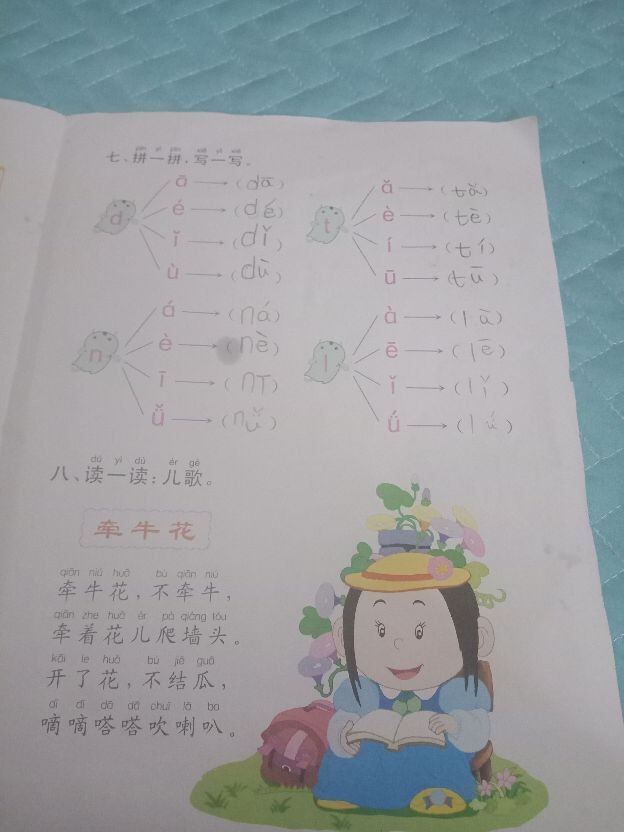 pīn yì pīn xiě yì xiě
七、拼一拼，写一写。
d
ā (dā)
é (dé)
ǐ (dǐ)
ù (dù)
t
ǎ (tǎ)
è (tè)
í (tí)
ū (tū)
n
á (ná)
è (nè)
ī (nī)
ǚ (nǚ)
l
à (là)
ē (lē)
ǐ (lǐ)
ǘ (lú)
dú yì dú ér gē
八、读一读：儿歌。
牵牛花
qiān niú huā bù qiān niú
牵牛花，不牵牛，
qiān zhe huā ér pá qiáng tóu
牵着花儿爬墙头。
kāi le huā bù jiē guā
开了花，不结瓜，
dī dī dā dā chuī lǎ ba
嘀嘀嗒嗒吹喇叭。